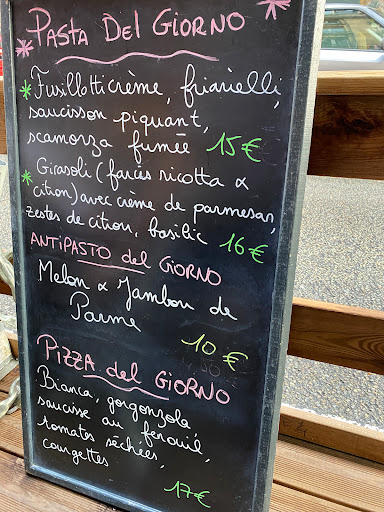 * PASTA DEL GIORNO *
* Fusillotti crème, friarielli,
saucisson piquant,
scamorza fumée 15€
* Girasoli (farcès ricotta &
citron) avec crème de parmesan,
zestes de citron, basilic 16€
ANTIPASTO del GIORNO
Melon & Jambon de
Parme
10€
PIZZA del GIORNO
Bianca, gorgonzola,
saucisse au fenouil,
tomates séchées,
courgettes
17€